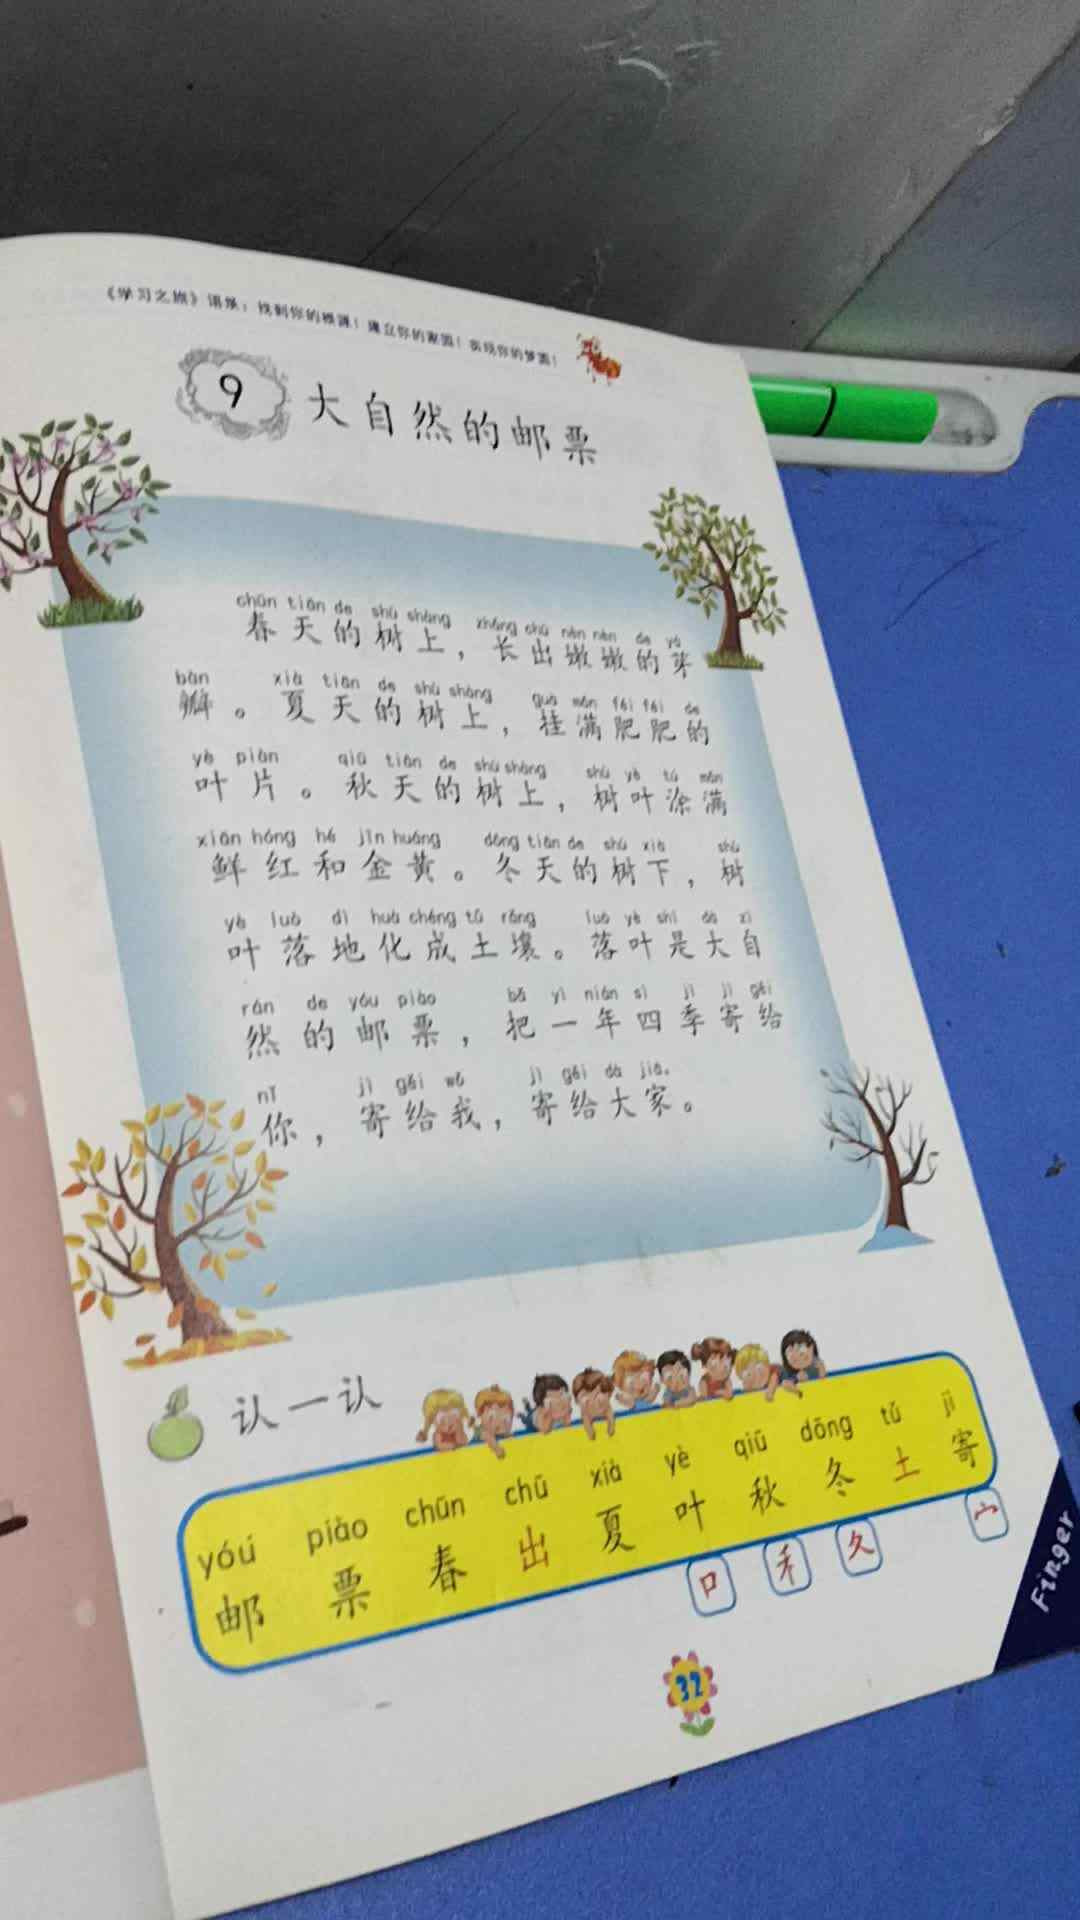 《学习之旅》语录：找到你的根源！建立你的家园！实现你的梦圆！
9 大自然的邮票
chūn tiān de shù shàng zhǎng chū nèn nèn de yá
春天的树上，长出嫩嫩的芽
bàn xià tiān de shù shàng guà mǎn féi féi de
瓣。夏天的树上，挂满肥肥的
yè piàn qiū tiān de shù shàng shù yè tú mǎn
叶片。秋天的树上，树叶涂满
xiān hóng hé jīn huáng dōng tiān de shù xià shù
鲜红和金黄。冬天的树下，树
yè luò dì huà chéng tǔ rǎng luò yè shì dà zì
叶落地化成土壤。落叶是大自
rán de yóu piào bǎ yì nián sì jì jì gěi
然的邮票，把一年四季寄给
nǐ jì gěi wǒ jì gěi dà jiā。
你，寄给我，寄给大家。
认一认
yóu piào chūn chū xià yè qiū dōng tǔ jì
邮 票 春 出 夏 叶 秋 冬 土 寄
口 禾 夂 宀
32
Finger